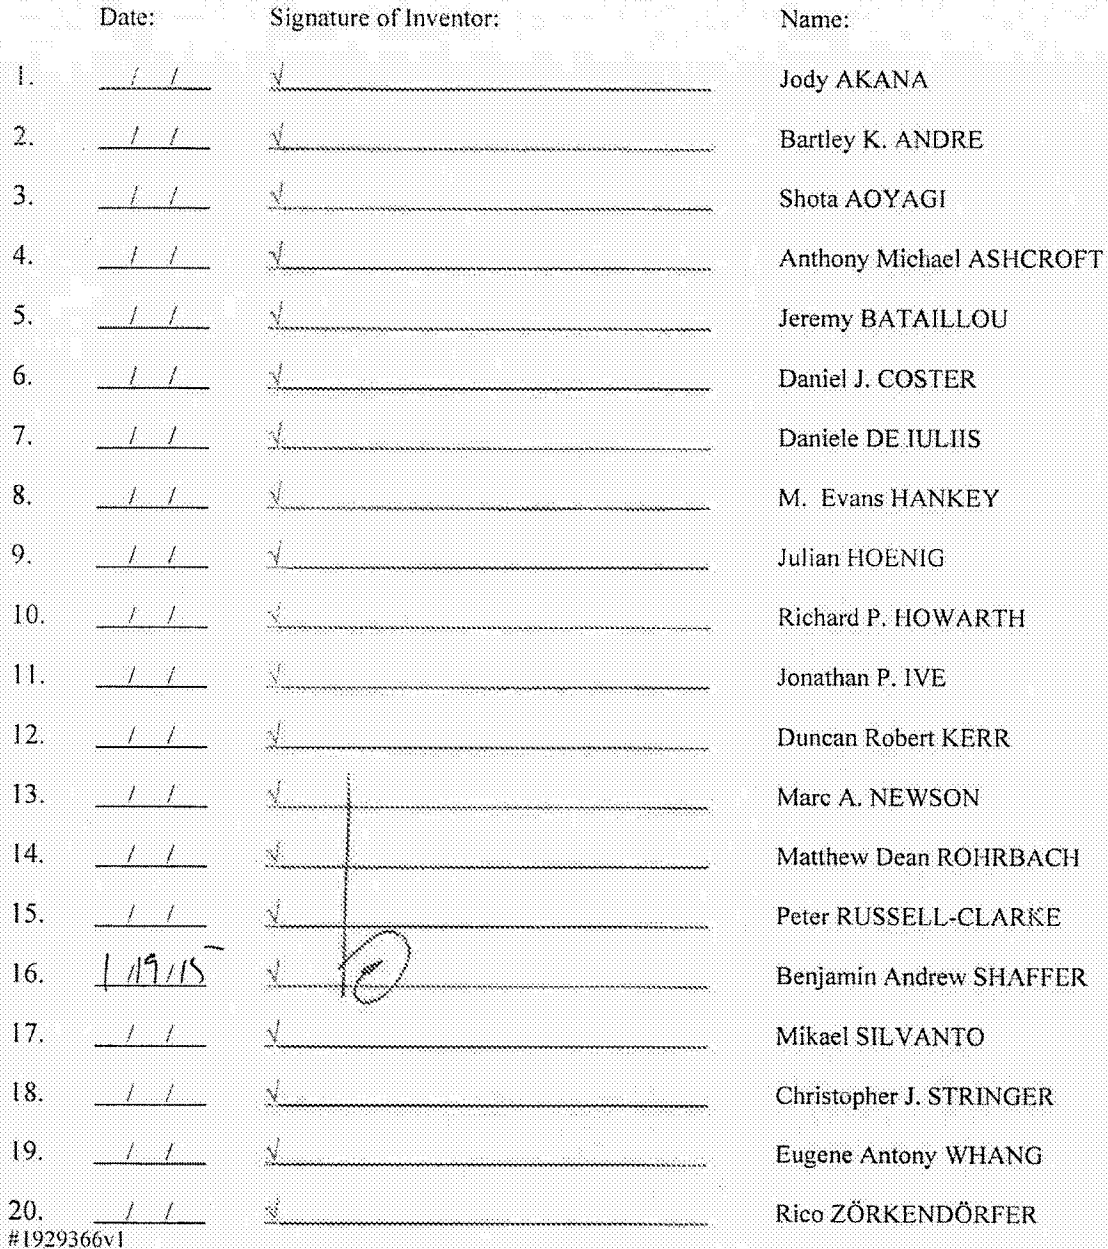 Date: Signature of Inventor: Name:
1. / / √ Jody AKANA
2. / / √ Bartley K. ANDRE
3. / / √ Shota AOYAGI
4. / / √ Anthony Michael ASHCROFT
5. / / √ Jeremy BATAILLOU
6. / / √ Daniel J. COSTER
7. / / √ Daniele DE IULIIS
8. / / √ M. Evans HANKEY
9. / / √ Julian HOENIG
10. / / √ Richard P. HOWARTH
11. / / √ Jonathan P. IVE
12. / / √ Duncan Robert KERR
13. / / √ Marc A. NEWSON
14. / / √ Matthew Dean ROHRBACH
15. / / √ Peter RUSSELL-CLARKE
16. 1/19/15 √ Benjamin Andrew SHAFFER
17. / / √ Mikael SILVANTO
18. / / √ Christopher J. STRINGER
19. / / √ Eugene Antony WHANG
20. / / √ Rico ZÖRKENDÖRFER
#1929366v1